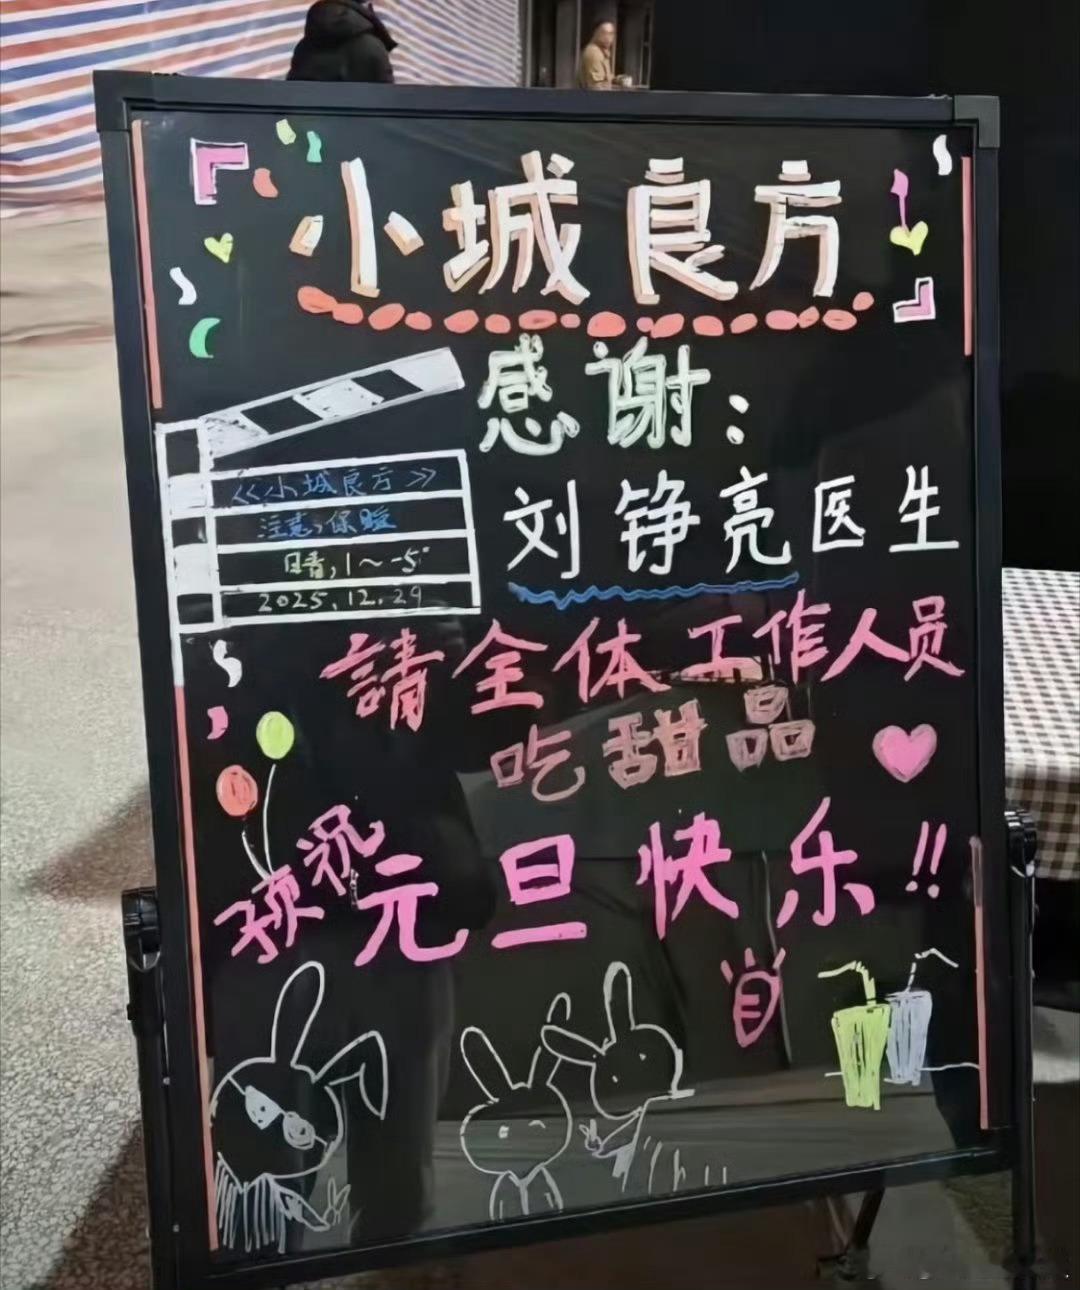 小城良方
感谢:
《小城良方》
注意,保暖
日香,1～-5°
2025.12.29
刘铮亮医生
請全体工作人员
吃甜品
预祝
元旦快乐!!